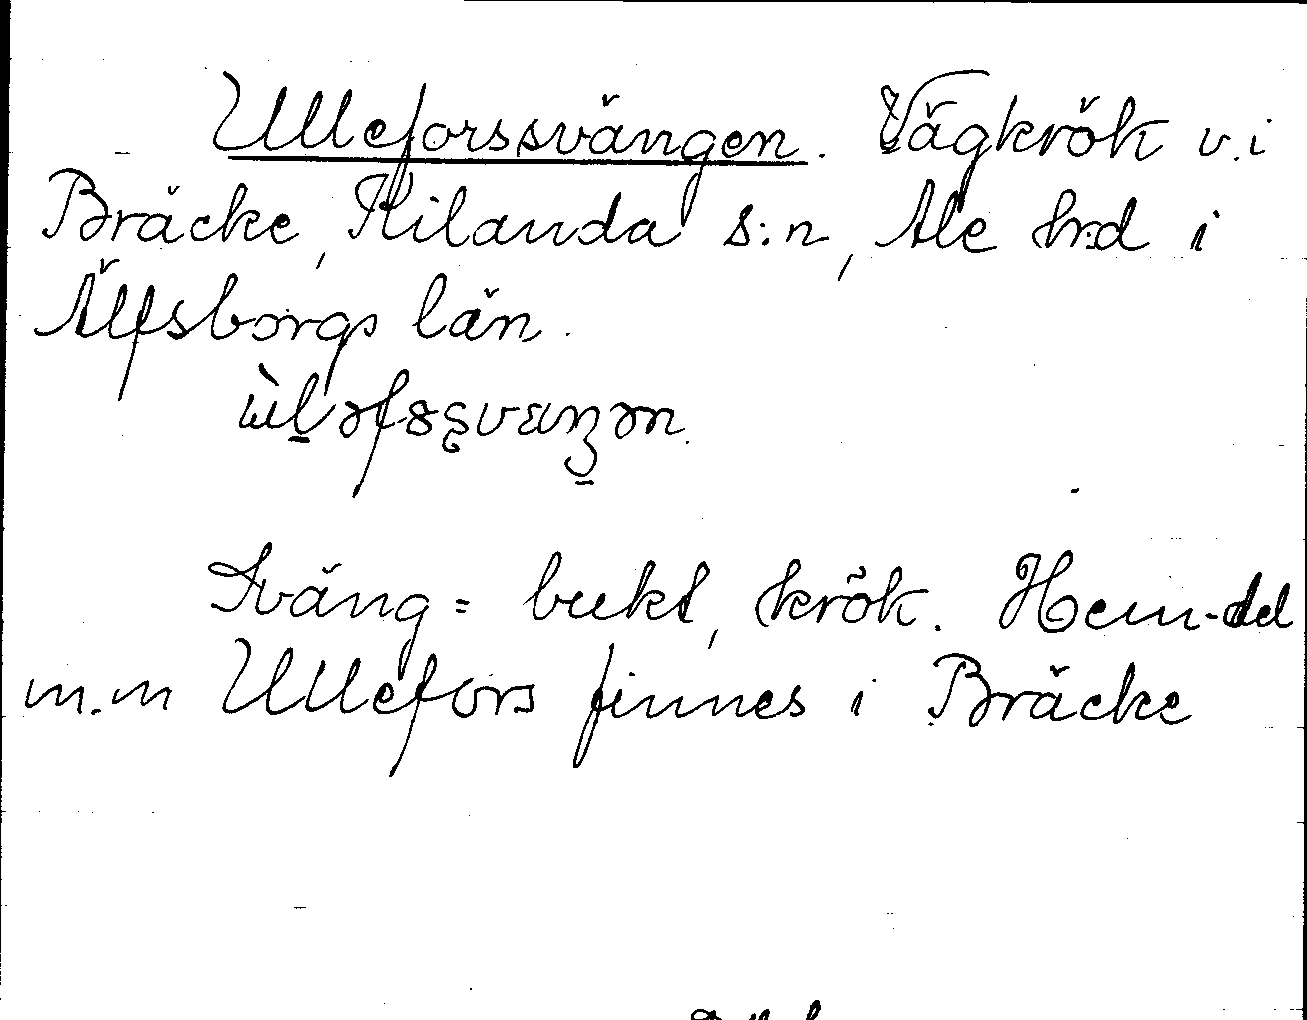 Ulleforssvängen. Vägkrök v. i
Bräcke, Kilanda s:n, Ale hrd i
Älfsborgs län.
Sväng = bukt, krök. Hem-del
m.m Ullefors finnes i Bräcke